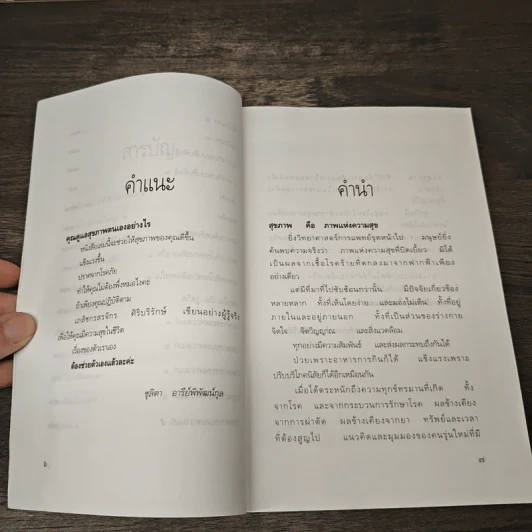 คำแนะ
คุณดูแลสุขภาพตนเองอย่างไร
หนังสือเล่มนี้จะช่วยให้สุขภาพของคุณดีขึ้น
แข็งแรงขึ้น
ปราศจากโรคภัย
ทำให้คุณไม่ต้องพึ่งหมอไงคะ
ถ้าเพียงคุณปฏิบัติตาม
เภสัชกรสรจักร ศิริบริรักษ์ เขียนอย่างผู้รู้จริง
เพื่อให้คุณมีความสุขในชีวิต
เรื่องของตัวเราเอง
ต้องช่วยตัวเองแล้วละค่ะ
ชุลิตา อารีย์พิพัฒน์กุล
๖
คำนำ
สุขภาพ คือ ภาพแห่งความสุข
ยิ่งวิทยาศาสตร์การแพทย์รุดหน้าไป มนุษย์ยิ่ง
ค้นพบความจริงว่า ภาพแห่งความสุขที่บิดเบี้ยว มิได้
เป็นผลจากเชื้อโรคร้ายที่ตกลงมาจากฟากฟ้าเพียง
อย่างเดียว
แต่มีที่มาที่ไปซับซ้อนกว่านั้น มีปัจจัยเกี่ยวข้อง
หลากหลาก ทั้งที่เห็นโดยง่าย และมองไม่เห็น ทั้งที่อยู่
ภายในและอยู่ภายนอก ทั้งที่เป็นส่วนของร่างกาย
จิตใจ จิตวิญญาณ และสิ่งแวดล้อม
ทุกอย่างมีความสัมพันธ์ และส่งผลกระทบถึงกันได้
ป่วยเพราะอาหารการกินก็ได้ แข็งแรงเพราะ
ปรับบริโภคนิสัยก็ได้อีกเหมือนกัน
เมื่อได้ตระหนักถึงความทุกข์ทรมานที่เกิด ทั้ง
จากโรค และจากกระบวนการรักษาโรค ผลข้างเคียง
จากการผ่าตัด ผลข้างเคียงจากยา ทรัพย์และเวลา
ที่ต้องสูญไป แนวคิดและมุมมองของคนรุ่นใหม่ที่มี
๗